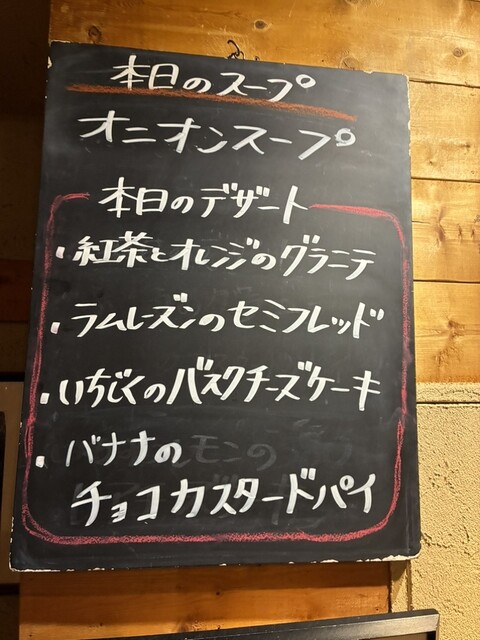 本日のスープ
オニオンスープ
本日のデザート
・紅茶とオレンジのグラニテ
・ラムレーズンのセミフレッド
・いちじくのバスクチーズケーキ
・バナナの
チョコカスタードパイ